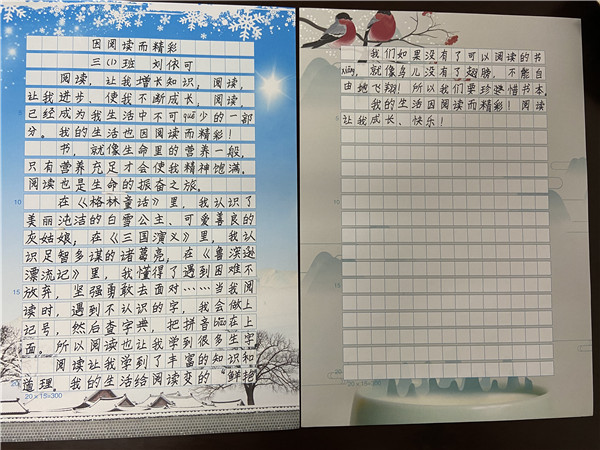 因阅读而精彩
三(1)班 刘依可
阅读，让我增长知识，阅读，
让我进步、使我不断成长，阅读，
已经成为我生活中不可quē少的一部
分。我的生活也因阅读而精彩！
书，就像生命里的营养一般，
只有营养充足才会使我精神饱满。
阅读也是生命的振奋之旅。
在《格林童话》里，我认识了
美丽沌洁的白雪公主、可爱善良的
灰姑娘，在《三国演义》里，我认
识足智多谋的诸葛亮，在《鲁滨逊
漂流记》里，我懂得了遇到困难不
放弃，坚强勇敢去面对……当我阅
读时，遇到不认识的字，我会做上
记号，然后查字典，把拼音biāo在上
面。所以阅读也让我学到很多生字
阅读让我学到了丰富的知识和
道理。我的生活给阅读变的“鲜艳
20×15=300
我们如果没有了可以阅读的书
就像鸟儿没有了翅膀，不能自
由地飞翔！所以我们要珍惜书本，
我的生活因阅读而精彩！阅读
让我成长、快乐！
5
10
15
20
20×15=300